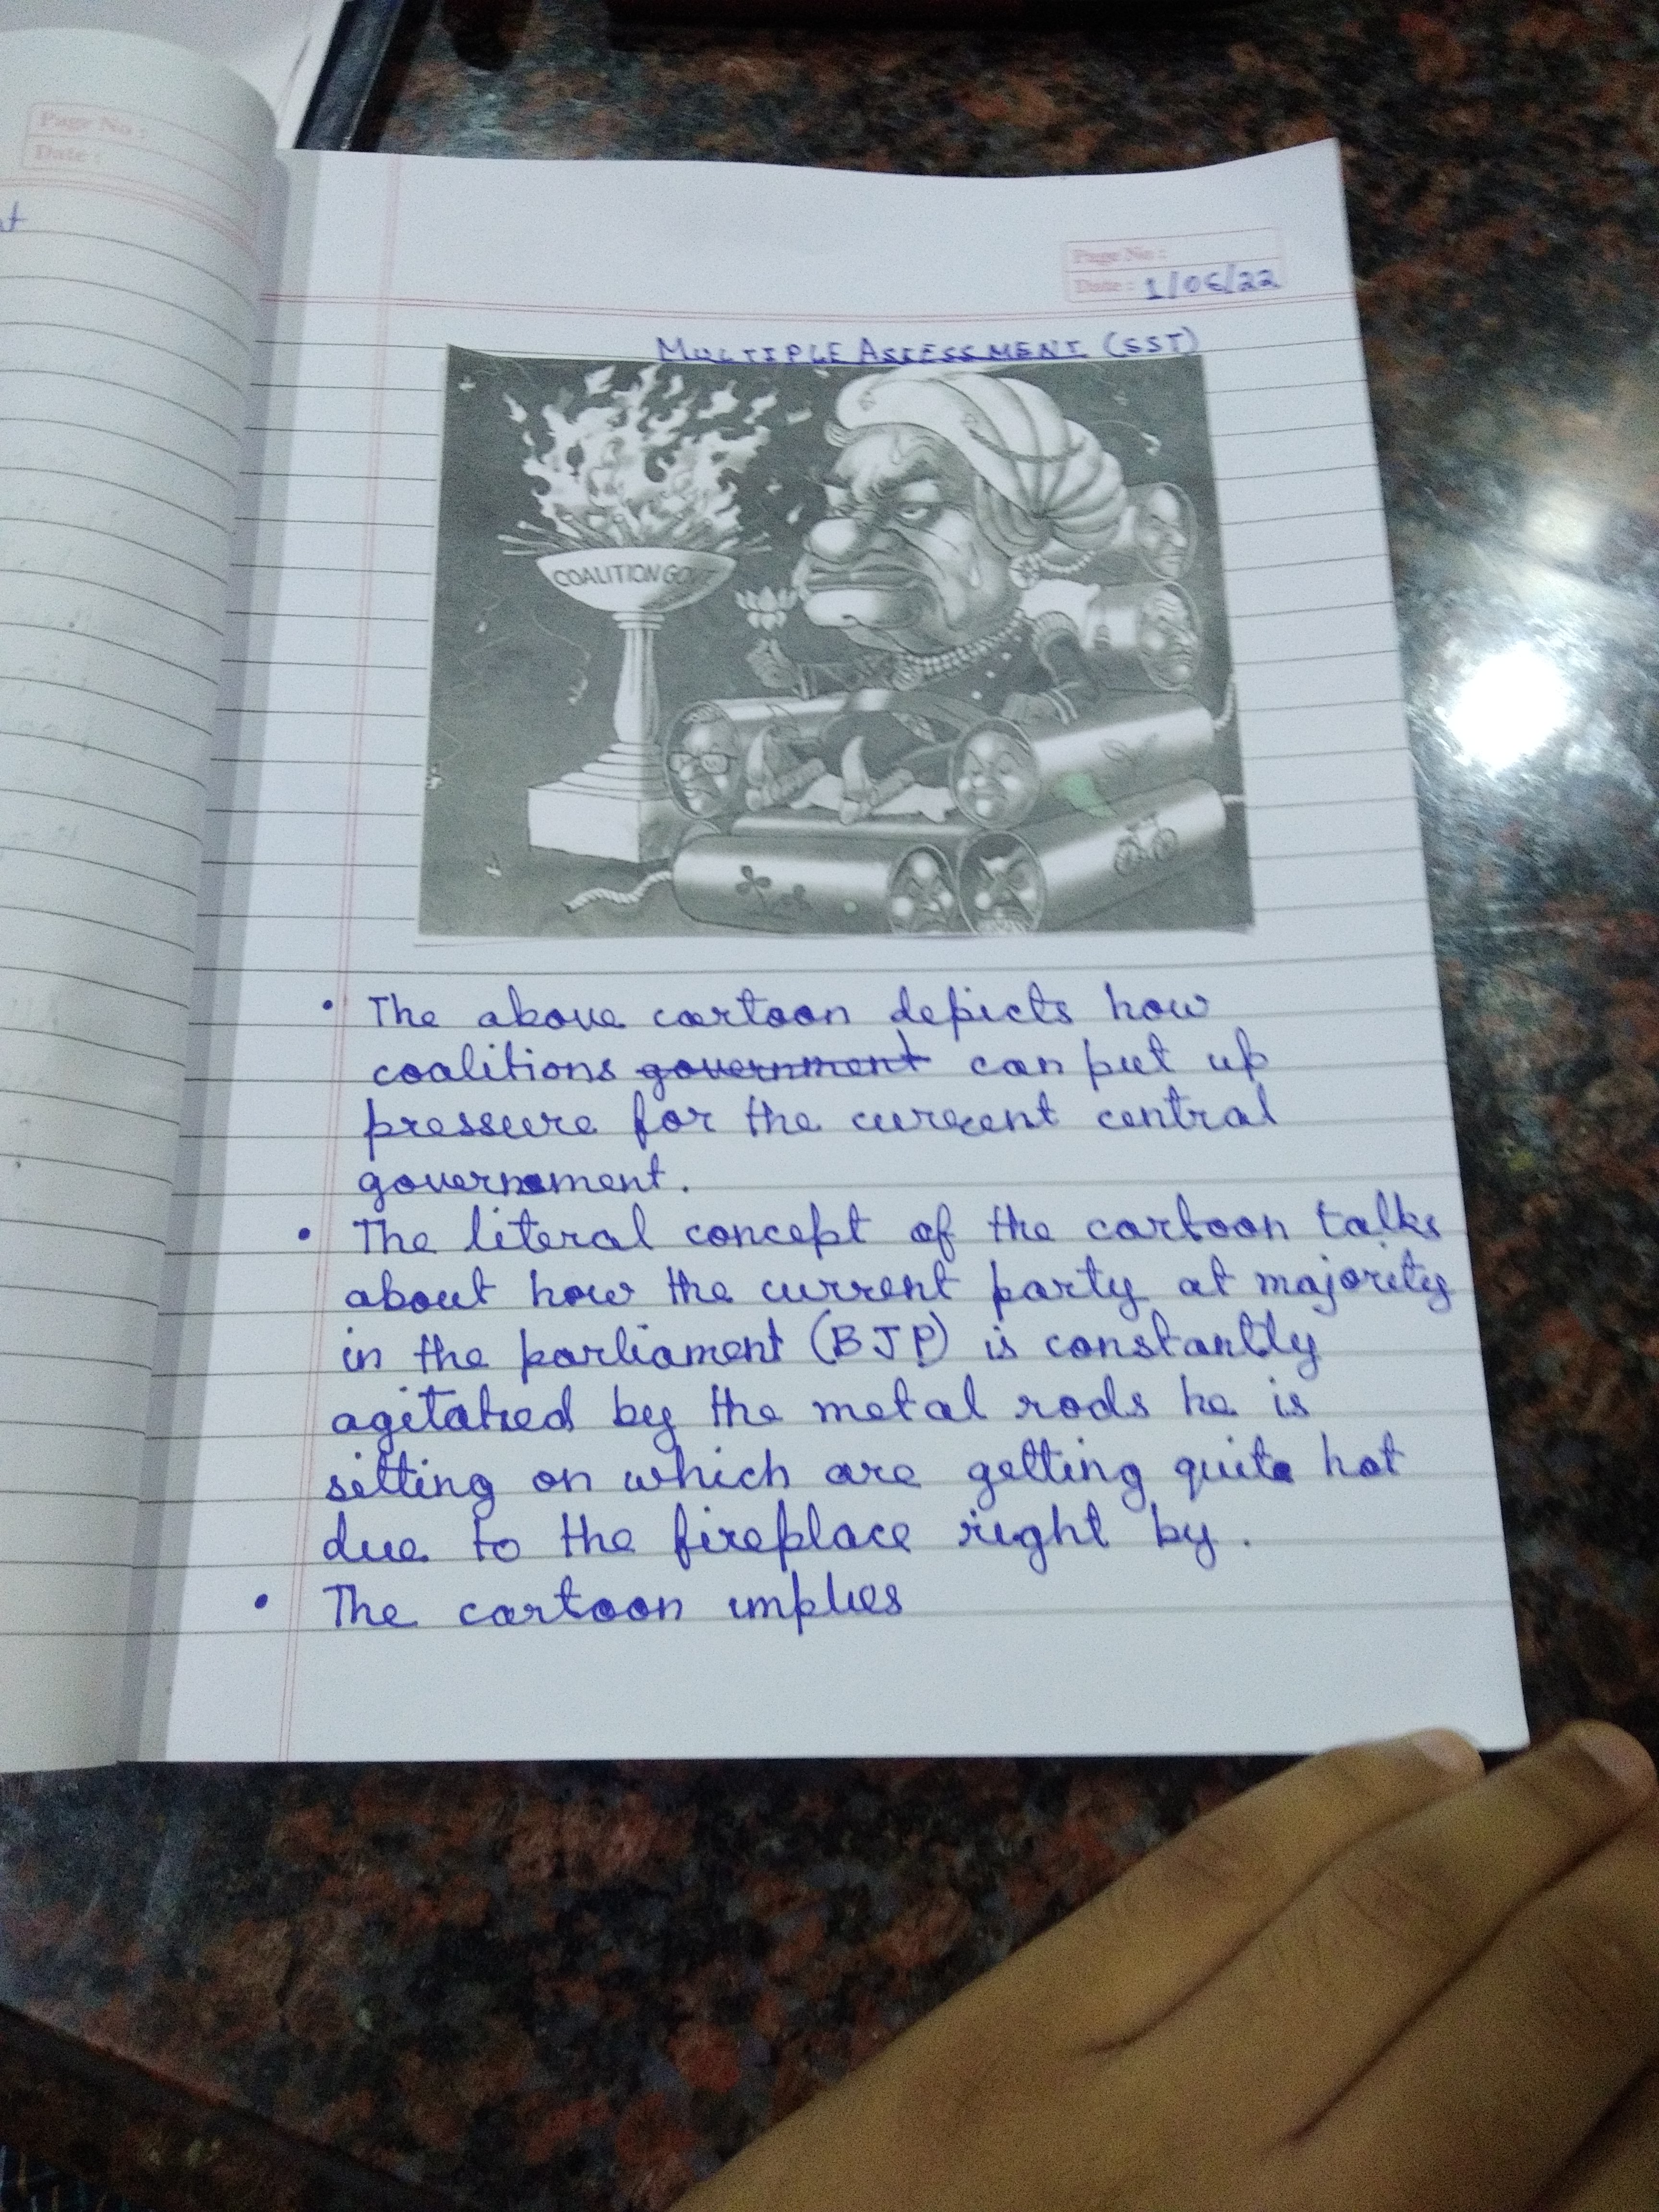 Page No :
Date :
t
Page No :
Date : 1/06/22
MULTIPLE ASSESSMENT (SST)
COALITION GOVT
• The above cartoon depicts how
coalitions government can put up
pressure for the current central
government.
• The literal concept of the cartoon talks
about how the current party at majority
in the parliament (BJP) is constantly
agitated by the metal rods he is
sitting on which are getting quite hot
due to the fireplace right by.
• The cartoon implies